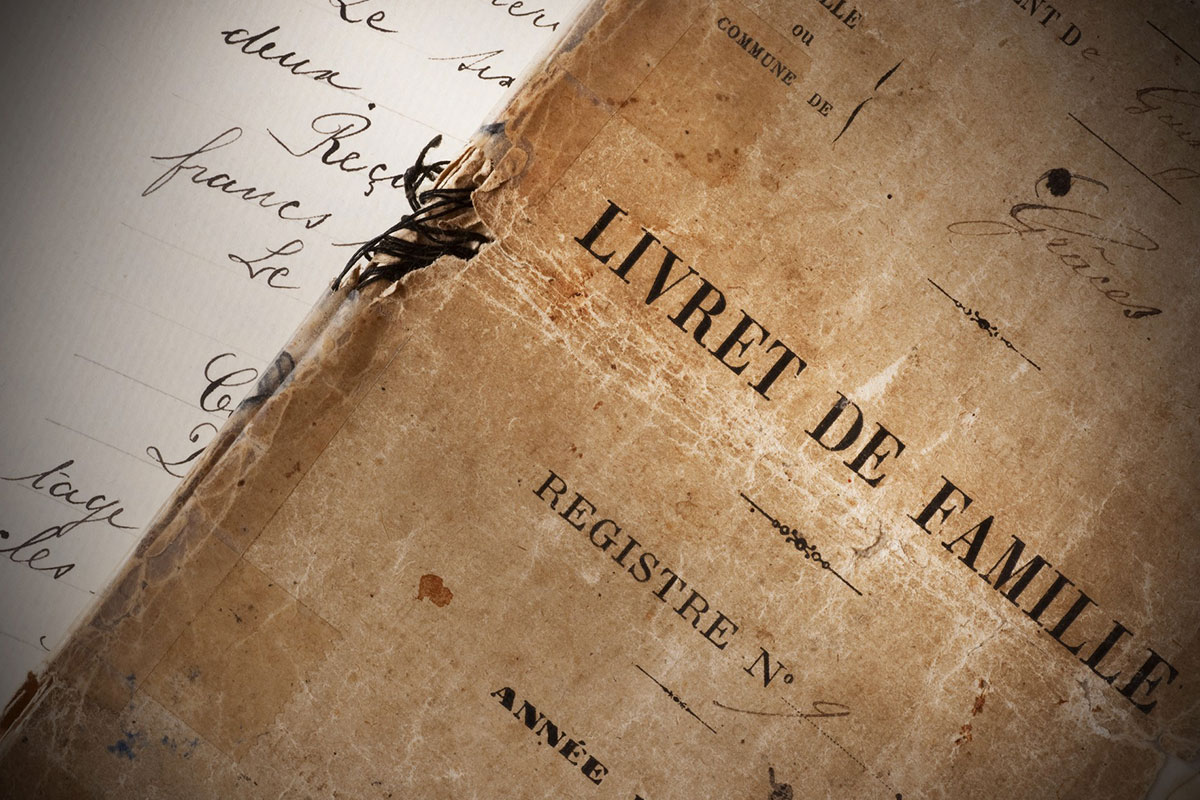 Le
six
deux.
Reçu
francs
Le
tage
cles
ENT De
LLE
ou
COMMUNE DE
Grâces
LIVRET DE FAMILLE
REGISTRE Nº 9
ANNÉE